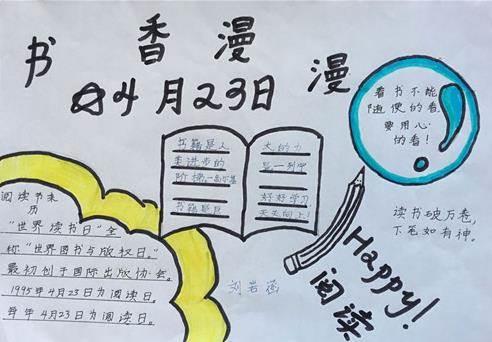 书香漫漫
☆4月23日
看书不能
随便的看
要用心
的看!
书籍是人
类进步的
阶梯
书籍是巨
大的力
好好学习
天天向上!
读书破万卷,
下笔如有神。
阅读节来
历
"世界读书日"全
称"世界图书与版权日。"
最初创于国际出版协会。
1995年4月23日为阅读日。
每年4月23日为阅读日。
刘若涵
Happy!
阅读